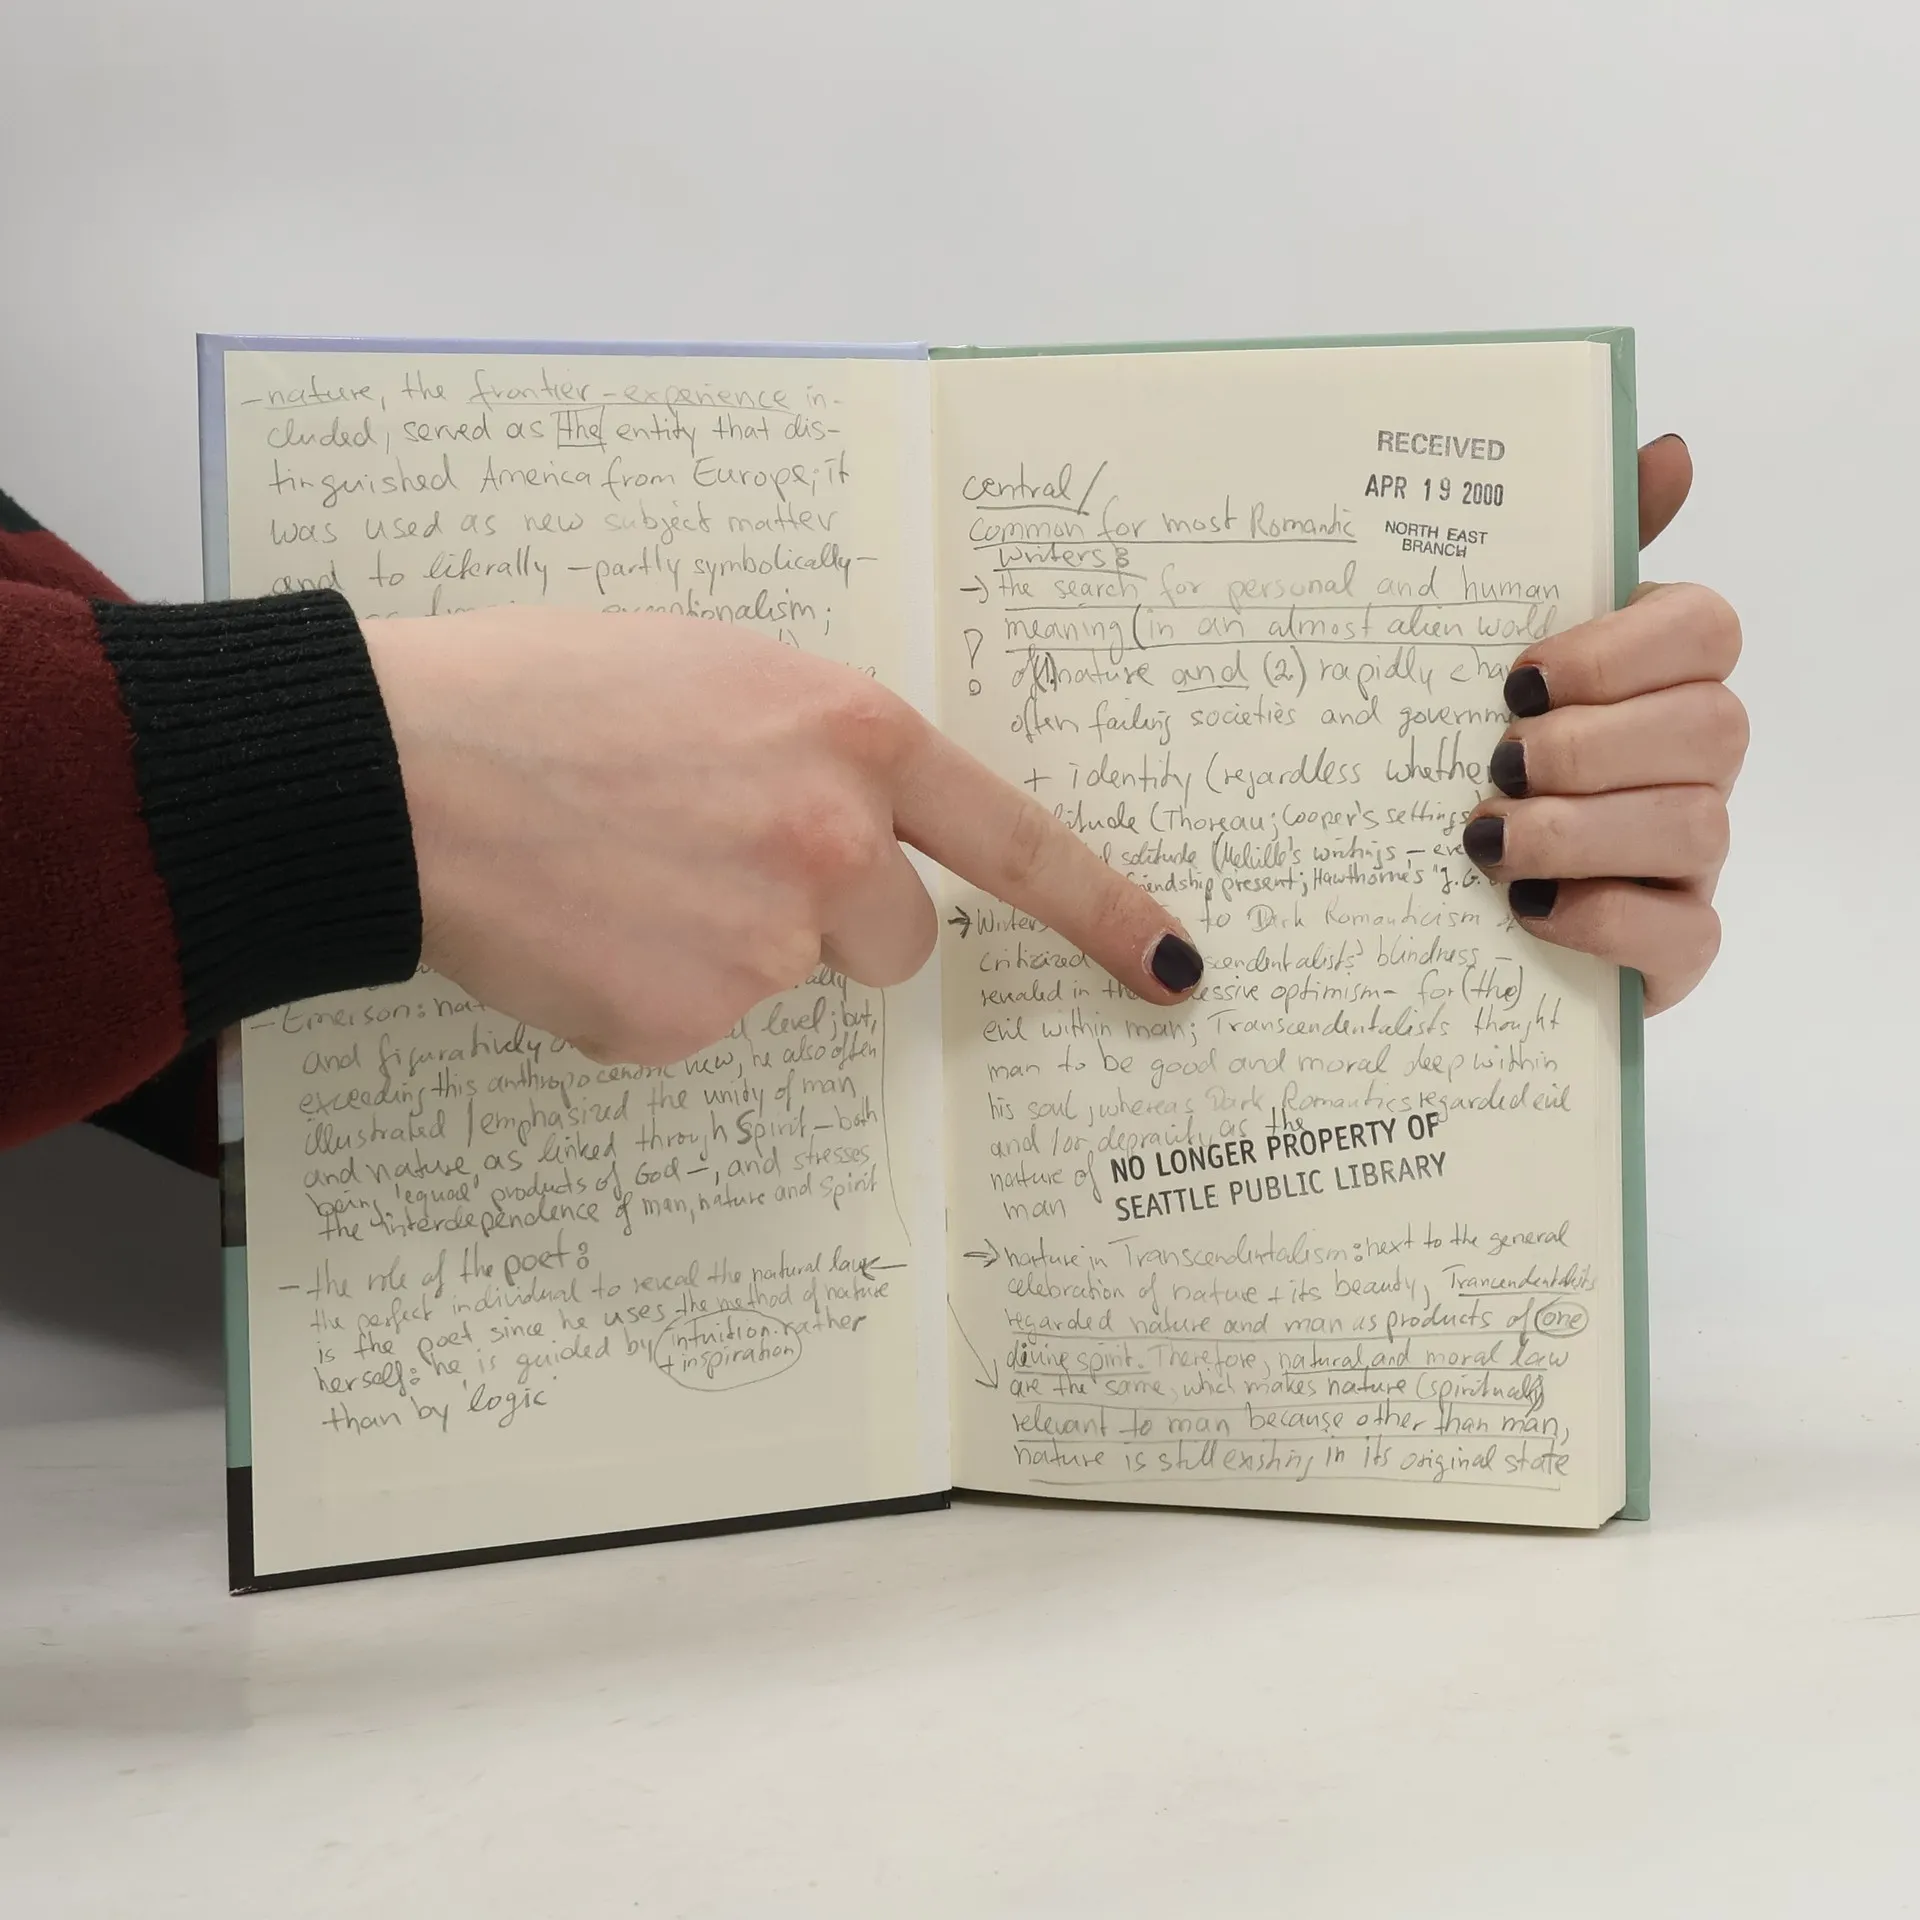 - nature, the frontier-experience in-
cluded, served as the entity that dis-
tinguished America from Europe; it
was used as new subject matter
and to literally - partly symbolically -
exceptionalism;
ally
- Emerson: nat
level; but,
and figuratively
exceeding this anthropocentric view, he also often
illustrated / emphasized the unity of man
and nature as linked through Spirit - both
being 'equal' products of God -, and stresses
the interdependence of man, nature and Spirit
- the role of the poet:
the perfect individual to reveal the natural law
is the poet since he uses the method of nature
herself: he is guided by intuition rather
+ inspiration
than by logic
RECEIVED
APR 19 2000
NORTH EAST
BRANCH
central/
common for most Romantic
writers:
→ the search for personal and human
meaning (in an almost alien world
! of (1) nature and (2) rapidly cha
often failing societies and governm
+ identity (regardless whether
itude (Thoreau; Cooper's settings
solitude (Melville's writings - eve
friendship present; Hawthorne's "J.G.
→ Writers to Dark Romanticism
criticized scendentalists' blindness -
revealed in th essive optimism - for (the)
evil within man; Transcendentalists thought
man to be good and moral deep within
his soul, whereas Dark Romantics regarded evil
and/or depravity as the
nature of
man
NO LONGER PROPERTY OF
SEATTLE PUBLIC LIBRARY
→ nature in Transcendentalism: next to the general
celebration of nature + its beauty, Trancendentalists
regarded nature and man as products of one
divine spirit. Therefore, natural and moral law
are the same, which makes nature (spiritually)
relevant to man because other than man,
nature is still existing in its original state